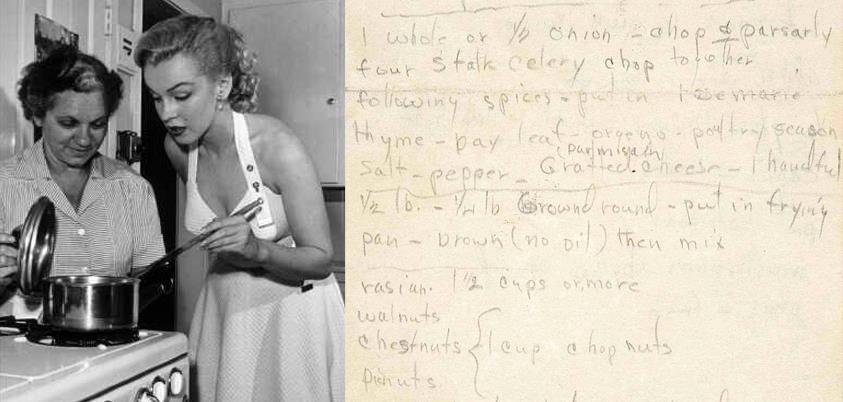 1 whole or 1/2 onion - chop & parsarly
four stalk celery chop together
following spices - put in rosemarie
thyme - bay leaf - oregeno - poultry season
salt - pepper - Grated parmisain cheese - 1 handful
1/2 lb. - 1/4 lb Ground round - put in frying
pan - brown (no oil) then mix
rasian. 1 1/2 cups or more
walnuts
chestnuts { 1 cup chop nuts
pienuts